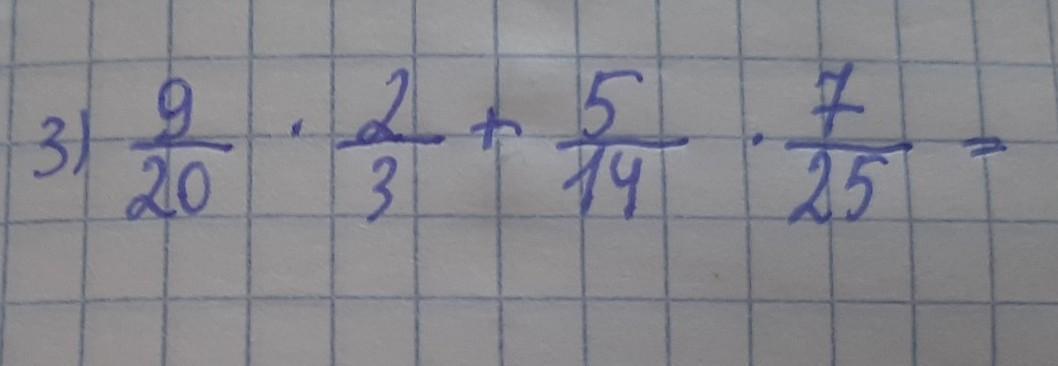 3) 9/20 · 2/3 + 5/14 · 7/25 =